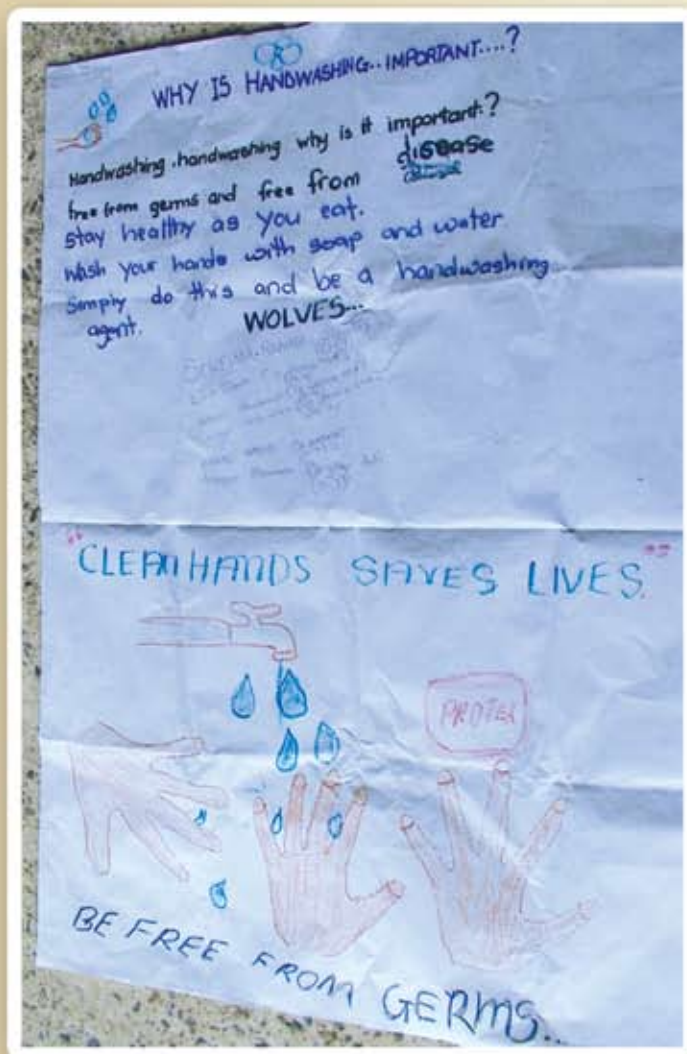 WHY IS HANDWASHING.. IMPORTANT....?
Handwashing.handwashing why is it important.?
free from germs and free from disease
stay healthy as you eat.
Wash your hands with soap and water
Simply do this and be a handwashing
agent.
WOLVES...
"CLEAN HANDS SAVES LIVES."
PROTEX
BE FREE FROM GERMS...